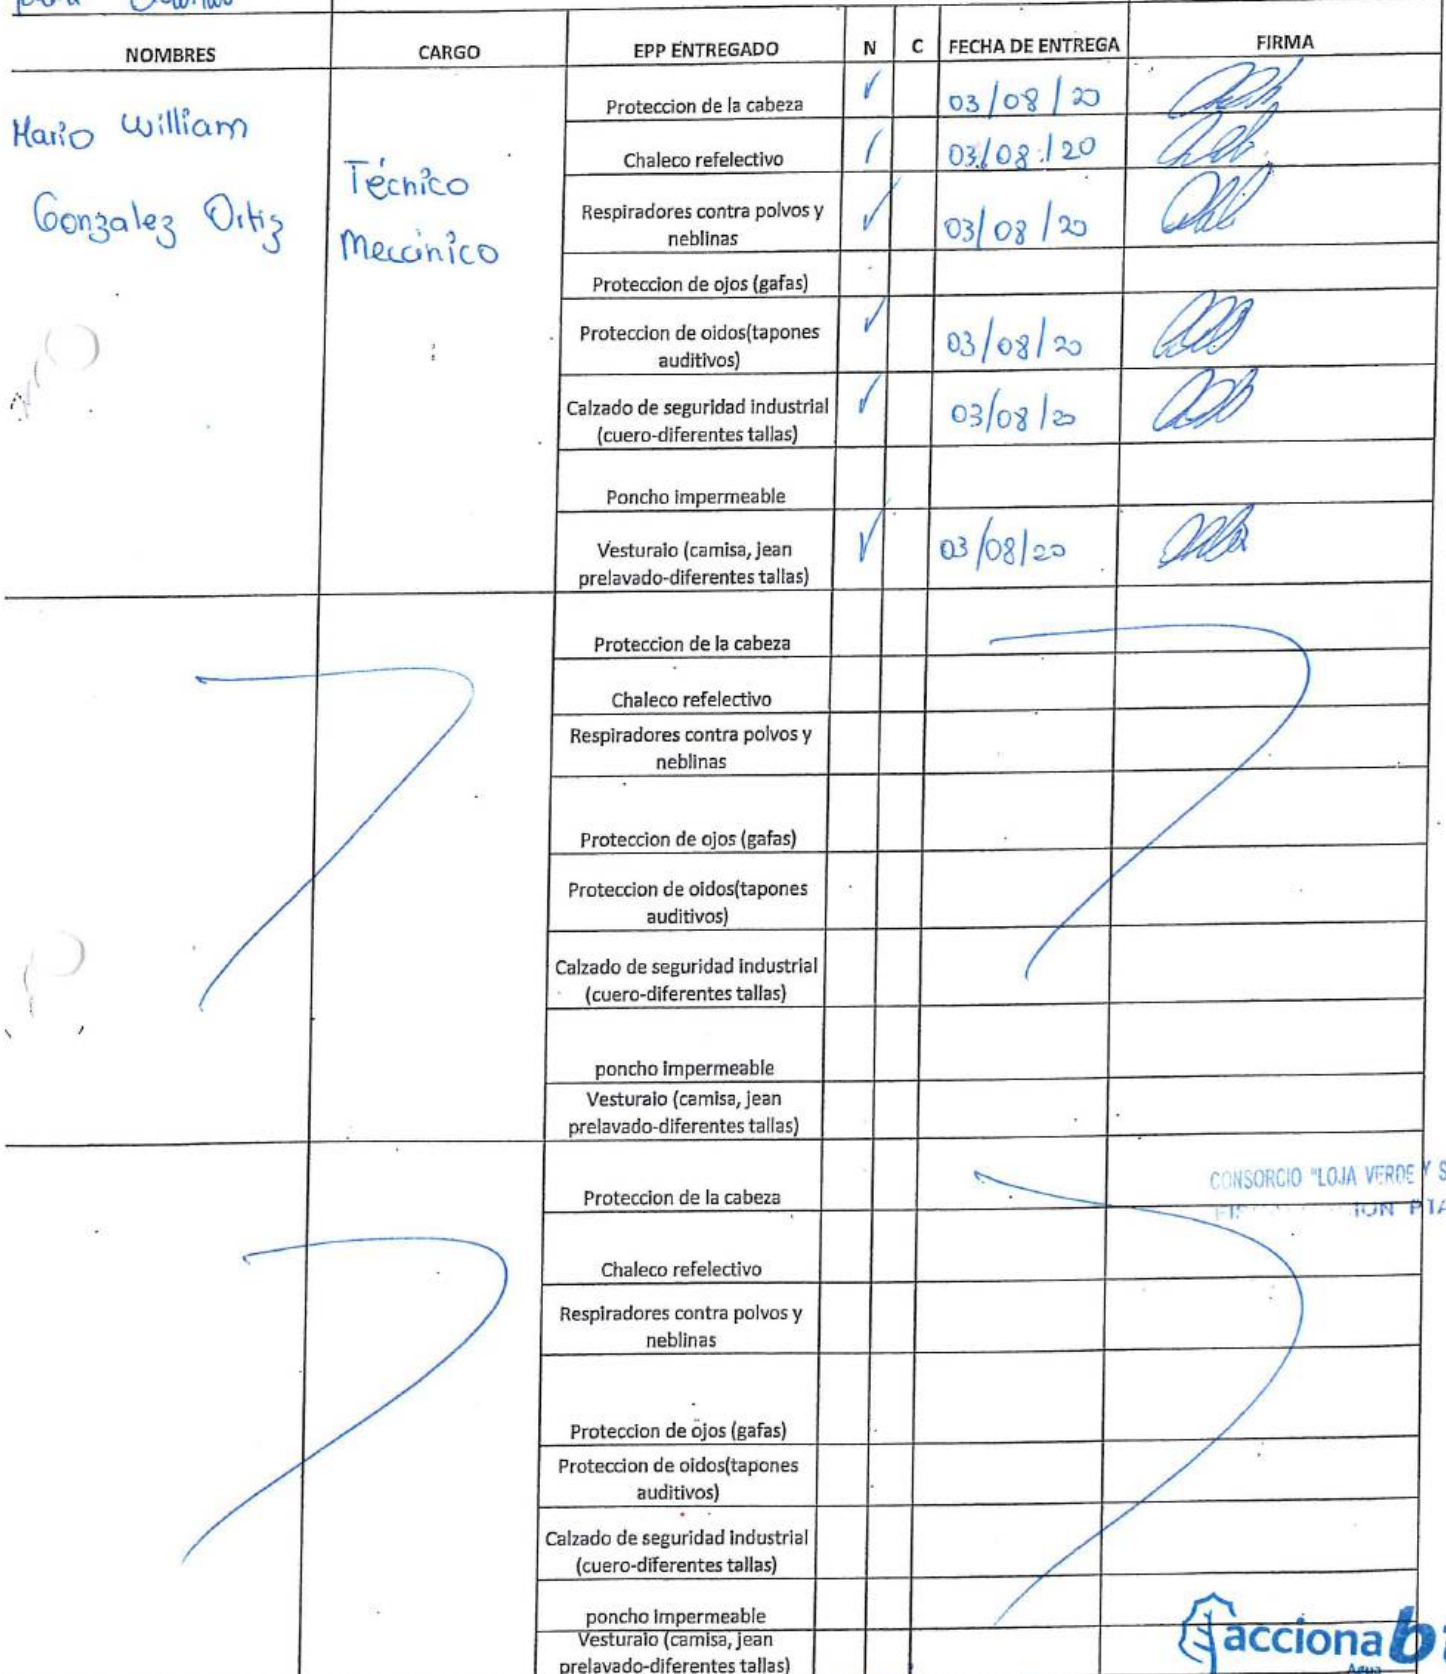 NOMBRES CARGO EPP ENTREGADO N C FECHA DE ENTREGA FIRMA
Mario William
Gonzalez Ortiz
Técnico
Mecánico
Proteccion de la cabeza ✓ 03/08/20
Chaleco refelectivo ✓ 03/08/20
Respiradores contra polvos y
neblinas ✓ 03/08/20
Proteccion de ojos (gafas)
Proteccion de oidos(tapones
auditivos) ✓ 03/08/20
Calzado de seguridad industrial
(cuero-diferentes tallas) ✓ 03/08/20
Poncho impermeable
Vesturaio (camisa, jean
prelavado-diferentes tallas) ✓ 03/08/20
Proteccion de la cabeza
Chaleco refelectivo
Respiradores contra polvos y
neblinas
Proteccion de ojos (gafas)
Proteccion de oidos(tapones
auditivos)
Calzado de seguridad industrial
(cuero-diferentes tallas)
poncho impermeable
Vesturaio (camisa, jean
prelavado-diferentes tallas)
CONSORCIO "LOJA VERDE Y S
Proteccion de la cabeza
Chaleco refelectivo
Respiradores contra polvos y
neblinas
Proteccion de ojos (gafas)
Proteccion de oidos(tapones
auditivos)
Calzado de seguridad industrial
(cuero-diferentes tallas)
poncho impermeable
Vesturaio (camisa, jean
prelavado-diferentes tallas)
acciona
Agua